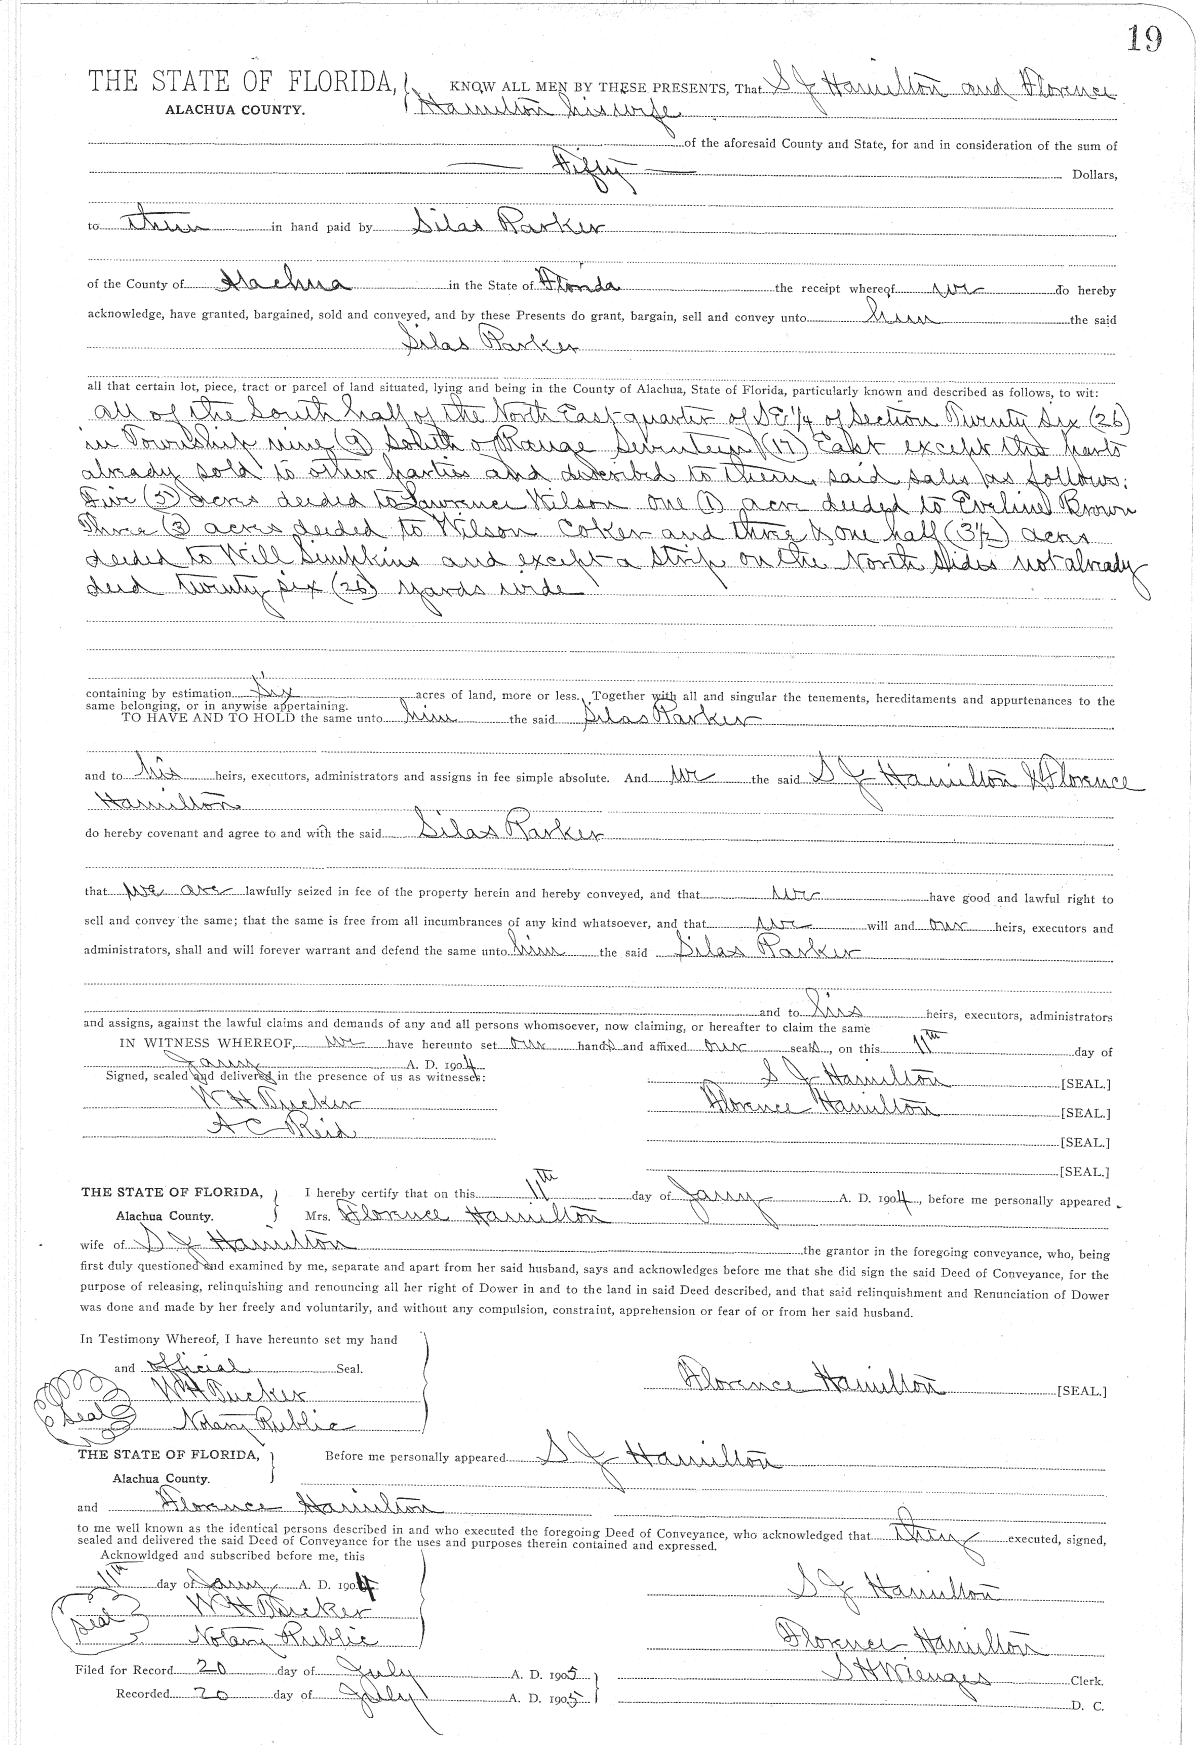 19
THE STATE OF FLORIDA, KNOW ALL MEN BY THESE PRESENTS, That S J Hamilton and Florence
ALACHUA COUNTY. Hamilton his wife
of the aforesaid County and State, for and in consideration of the sum of
Fifty Dollars,
to them in hand paid by Silas Parker
of the County of Alachua in the State of Florida the receipt whereof we do hereby
acknowledge, have granted, bargained, sold and conveyed, and by these Presents do grant, bargain, sell and convey unto him the said
Silas Parker
all that certain lot, piece, tract or parcel of land situated, lying and being in the County of Alachua, State of Florida, particularly known and described as follows, to wit:
all of the South half of the North East quarter of SE 1/4 of Section Twenty Six (26)
in Township nine (9) South of Range Seventeen (17) East except the parts
already sold to other parties and described to them, said sales as follows:
Five (5) acres deeded to Lawrence Wilson one (1) acre deeded to Eveline Brown
Three (3) acres deeded to Wilson Coker and three & one half (3½) acres
deeded to Will Simpkins and except a strip on the North Sides not already
deed twenty six (26) yards wide
containing by estimation Six acres of land, more or less. Together with all and singular the tenements, hereditaments and appurtenances to the
same belonging, or in anywise appertaining.
TO HAVE AND TO HOLD the same unto him the said Silas Parker
and to his heirs, executors, administrators and assigns in fee simple absolute. And we the said S J Hamilton & Florence
Hamilton
do hereby covenant and agree to and with the said Silas Parker
that we are lawfully seized in fee of the property herein and hereby conveyed, and that we have good and lawful right to
sell and convey the same; that the same is free from all incumbrances of any kind whatsoever, and that we will and our heirs, executors and
administrators, shall and will forever warrant and defend the same unto him the said Silas Parker
and to his heirs, executors, administrators
and assigns, against the lawful claims and demands of any and all persons whomsoever, now claiming, or hereafter to claim the same
IN WITNESS WHEREOF, we have hereunto set our hands and affixed our seals, on this 11th day of
Jany A. D. 1904
Signed, sealed and delivered in the presence of us as witnesses: S J Hamilton [SEAL.]
W H Tucker Florence Hamilton [SEAL.]
A C Reid [SEAL.]
[SEAL.]
THE STATE OF FLORIDA, I hereby certify that on this 11th day of Jany A. D. 1904, before me personally appeared
Alachua County. Mrs. Florence Hamilton
wife of S J Hamilton the grantor in the foregoing conveyance, who, being
first duly questioned and examined by me, separate and apart from her said husband, says and acknowledges before me that she did sign the said Deed of Conveyance, for the
purpose of releasing, relinquishing and renouncing all her right of Dower in and to the land in said Deed described, and that said relinquishment and Renunciation of Dower
was done and made by her freely and voluntarily, and without any compulsion, constraint, apprehension or fear of or from her said husband.
In Testimony Whereof, I have hereunto set my hand
and official Seal. Florence Hamilton [SEAL.]
W H Tucker
Seal Notary Public
THE STATE OF FLORIDA, Before me personally appeared S J Hamilton
Alachua County.
and Florence Hamilton
to me well known as the identical persons described in and who executed the foregoing Deed of Conveyance, who acknowledged that they executed, signed,
sealed and delivered the said Deed of Conveyance for the uses and purposes therein contained and expressed.
Acknowldged and subscribed before me, this
11th day of Jany A. D. 1904 S J Hamilton
W H Tucker
Seal Notary Public Florence Hamilton
Filed for Record 20 day of July A. D. 1905 S H Wienges Clerk.
Recorded 20 day of July A. D. 1905 D. C.